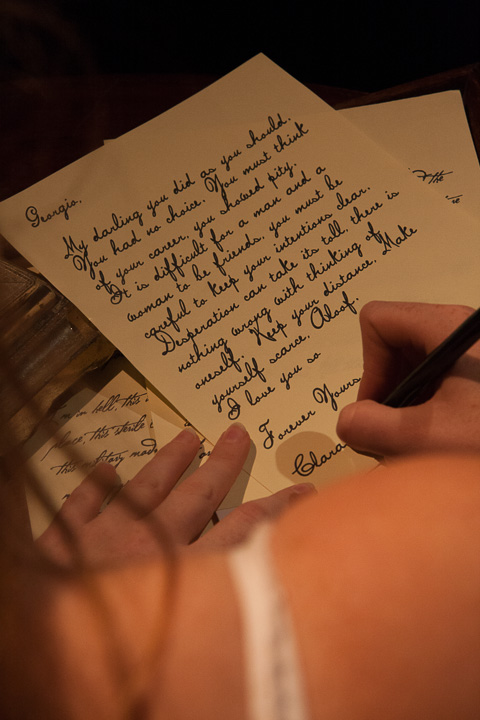 Georgio,
My darling you did as you should.
You had no choice. You must think
of your career, you showed pity.
It is difficult for a man and a
woman to be friends, you must be
careful to keep your intentions clear.
Desperation can take its toll, there is
nothing wrong with thinking of
oneself. Keep your distance. Make
yourself scarce. Aloof.
I love you so
Forever Yours
Clara
in hell, this
place, this sterile
this military